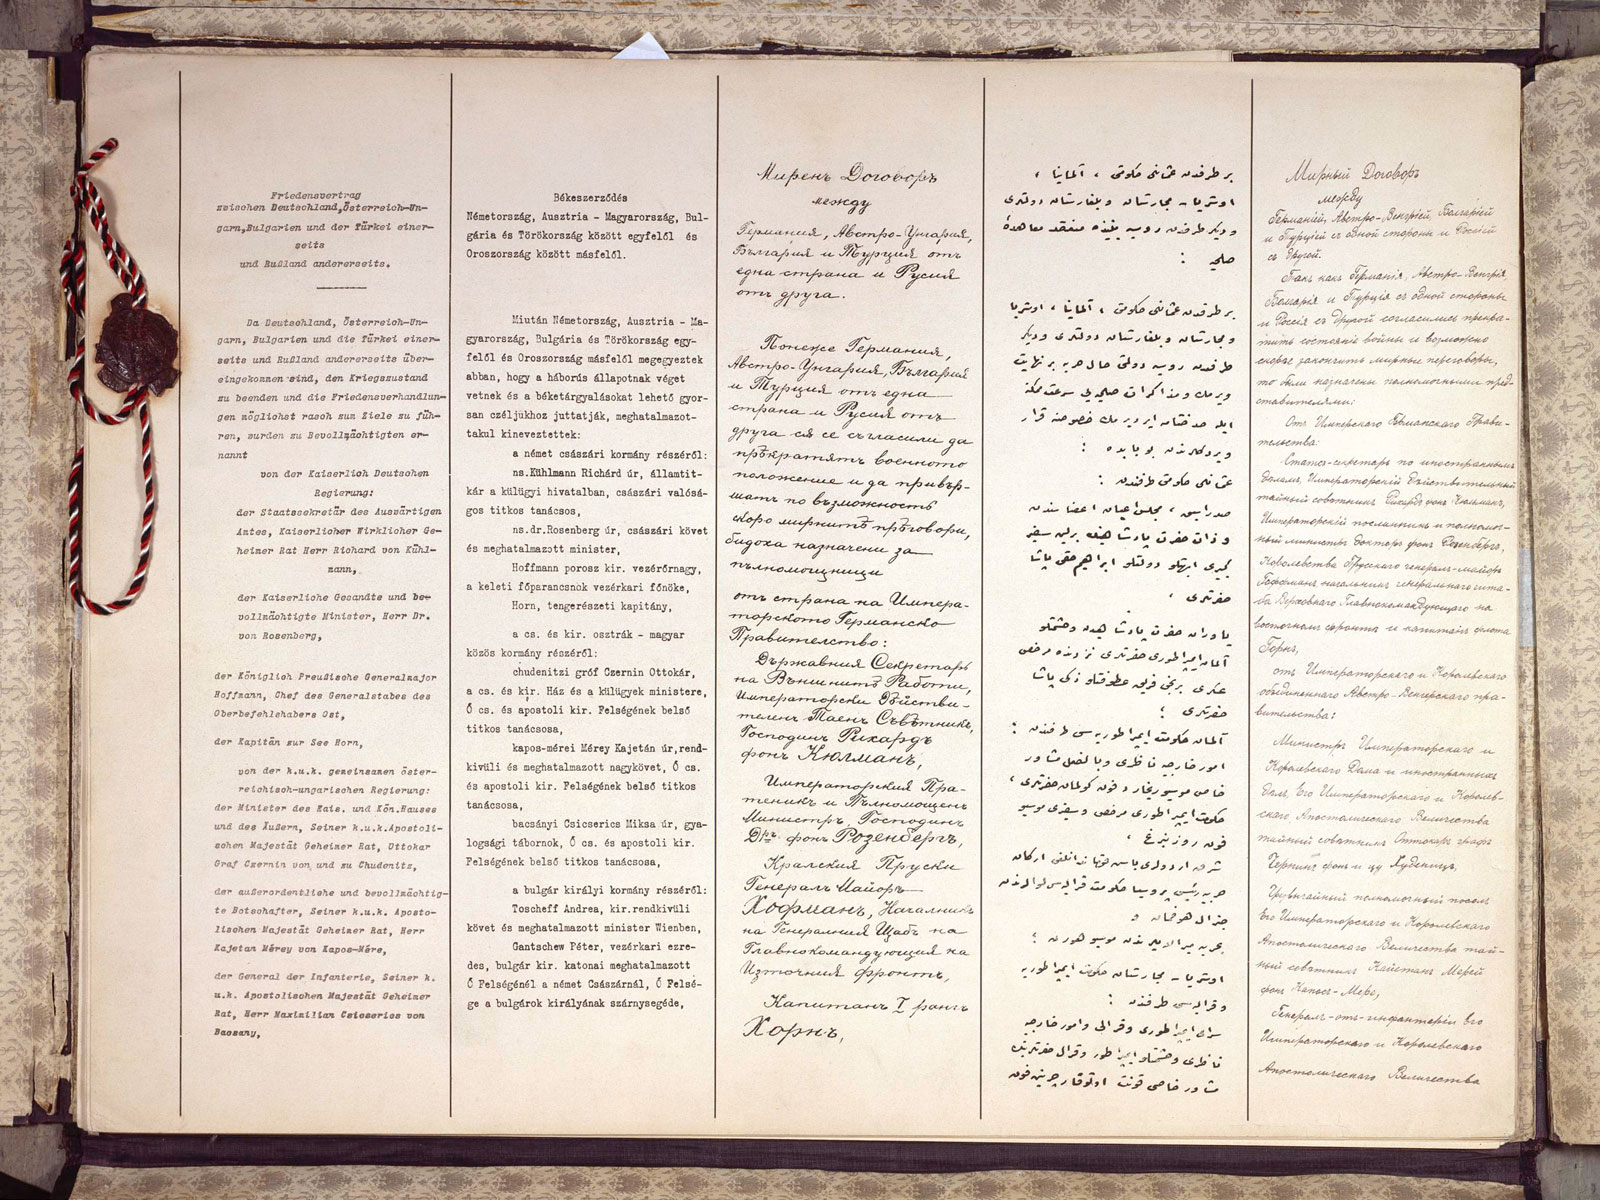 Friedensvertrag
zwischen Deutschland,Österreich-Un-
garn,Bulgarien und der Türkei einer-
seits
und Rußland andererseits.
Da Deutschland, Österreich-Un-
garn, Bulgarien und die Türkei einer-
seits und Rußland andererseits über-
eingekommen sind, den Kriegszustand
zu beenden und die Friedensverhandlun-
gen möglichst rasch zum Ziele zu füh-
ren, wurden zu Bevollmächtigten er-
nannt
von der Kaiserlich Deutschen
Regierung:
der Staatssekretär des Auswärtigen
Amtes, Kaiserlicher Wirklicher Ge-
heimer Rat Herr Richard von Kühl-
mann,
der Kaiserliche Gesandte und be-
vollmächtigte Minister, Herr Dr.
von Rosenberg,
der Königlich Preußische Generalmajor
Hoffmann, Chef des Generalstabes des
Oberbefehlshabers Ost,
der Kapitän zur See Horn,
von der k.u.k. gemeinsamen öster-
reichisch-ungarischen Regierung:
der Minister des Kais. und Kön.Hauses
und des Äußern, Seiner k.u.k.Apostoli-
schen Majestät Geheimer Rat, Ottokar
Graf Czernin von und zu Chudenitz,
der außerordentliche und bevollmächtig-
te Botschafter, Seiner k.u.k. Aposto-
lischen Majestät Geheimer Rat, Herr
Kajetan Mérey von Kapos-Mére,
der General der Infanterie, Seiner k.
u.k. Apostolischen Majestät Geheimer
Rat, Herr Maximilian Csicserics von
Bacsany,
Békeszerződés
Németország, Ausztria - Magyarország, Bul-
gária és Törökország között egyfelől és
Oroszország között másfelől.
Miután Németország, Ausztria - Ma-
gyarország, Bulgária és Törökország egy-
felől és Oroszország másfelől megegyeztek
abban, hogy a háborús állapotnak véget
vetnek és a béketárgyalásokat lehető gyor-
san céljukhoz juttatják, meghatalmazot-
takul kineveztettek:
a német császári kormány részéről:
ns.Kühlmann Richárd úr, államtit-
kár a külügyi hivatalban, császári valósá-
gos titkos tanácsos,
ns.dr.Rosenberg úr, császári követ
és meghatalmazott minister,
Hoffmann porosz kir. vezérőrnagy,
a keleti főparancsnok vezérkari főnöke,
Horn, tengerészeti kapitány,
a cs. és kir. osztrák - magyar
közös kormány részéről:
chudenitzi gróf Czernin Ottokár,
a cs. és kir. Ház és a külügyek ministere,
Ő cs. és apostoli kir. Felségének belső
titkos tanácsosa,
kapos-mérei Mérey Kajetán úr,rend-
kivüli és meghatalmazott nagykövet, Ő cs.
és apostoli kir. Felségének belső titkos
tanácsosa,
bacsányi Csicserics Miksa úr, gya-
logsági tábornok, Ő cs. és apostoli kir.
Felségének belső titkos tanácsosa,
a bulgár királyi kormány részéről:
Toscheff Andrea, kir.rendkivüli
követ és meghatalmazott minister Wienben,
Gantschew Péter, vezérkari ezre-
des, bulgár kir. katonai meghatalmazott
Ő Felségénél a német Császárnál, Ő Felsé-
ge a bulgárok királyának szárnysegéde,
Миренъ Договоръ
между
Германия, Австро-Унгария,
България и Турция отъ
една страна и Русия
отъ друга.
Понеже Германия,
Австро-Унгария, България
и Турция отъ една
страна и Русия отъ
друга ся се съгласили да
прѣкратятъ военното
положение и да привър-
шатъ по възможность
скоро мирнитѣ прѣговори,
бидоха назначени за
пълномощници
отъ страна на Импера-
торското Германско
Правителство:
Държавния Секретарь
на Външнитѣ Работи,
Императорски Дѣйстви-
теленъ Таенъ Съвѣтникъ,
Господинъ Рихардъ
фонъ Кюлманъ,
Императорския Пра-
теникъ и Пълномощенъ
Министръ, Господинъ
Д-ръ фонъ Розенбергъ,
Кралския Пруски
Генералъ Майоръ
Хофманъ, Началникъ
на Генералния Щабъ на
Главнокомандующия на
Източния фронтъ,
Капитанъ I рангъ
Хорнъ,
بر طرفدن عثمانلى حكومتى ، آلمانيا ،
اوستريا - مجارستان و بلغارستان دولتلرى
و ديكر طرفدن روسيه بيننده منعقد معاهدۀ
صلحيه :
بر طرفدن عثمانلى حكومتى ، آلمانيا ، اوستريا
و مجارستان و بلغارستان دولتلرى و ديكر
طرفدن روسيه دولتى حال حربه بر نهايت
عثمانلى حكومتى طرفندن :
Мирный Договоръ
между
Германіей, Австро-Венгріей, Болгаріей
и Турціей съ одной стороны и Россіей
съ другой.
Такъ какъ Германія, Австро-Венгрія,
Болгарія и Турція съ одной стороны
и Россія съ другой согласились прекра-
тить состояніе войны и возможно
скорѣе закончить мирные переговоры,
то были назначены полномочными пред-
ставителями:
Отъ Имперскаго Германскаго Прави-
тельства:
Статсъ-секретарь по иностраннымъ
дѣламъ, Императорскій Дѣйствительный
тайный совѣтникъ Рихардъ фонъ Кюльманъ,
Императорскій посланникъ и полномоч-
ный министръ докторъ фонъ Розенбергъ,
Королевства Прусскаго генералъ-майоръ
Гоффманъ, начальникъ генеральнаго шта-
ба Верховнаго Главнокомандующаго на
восточномъ фронтѣ и капитанъ флота
Горнъ,
отъ Императорскаго и Королевскаго
объединеннаго Австро-Венгерскаго пра-
вительства:
Министръ Императорскаго и
Королевскаго Дома и иностранныхъ
дѣлъ, Его Императорскаго и Королев-
скаго Апостолическаго Величества
тайный совѣтникъ Оттокаръ графъ
Чернинъ фонъ и цу Худеницъ,
Чрезвычайный полномочный посолъ
Его Императорскаго и Королевскаго
Апостолическаго Величества тай-
ный совѣтникъ Кайетанъ Мерей
фонъ Капосъ-Мере,
Генералъ-отъ-инфантеріи Его
Императорскаго и Королевскаго
Апостолическаго Величества